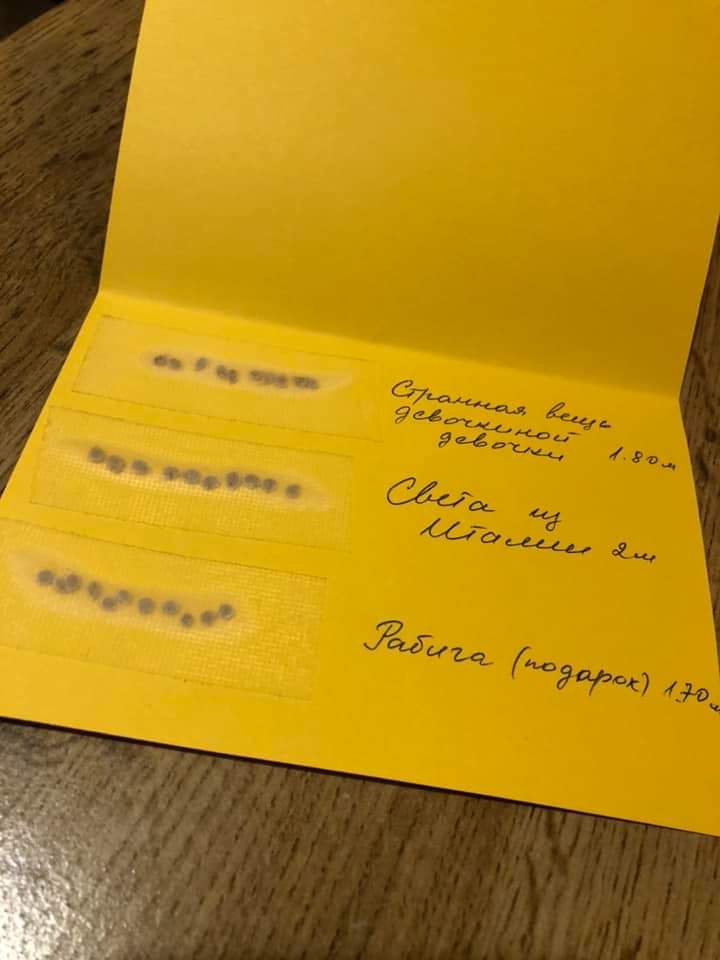 Странная вещь
девочкиной
девочки 1.80м
Света из
Италии 2м
Рабига (подарок) 1.70м